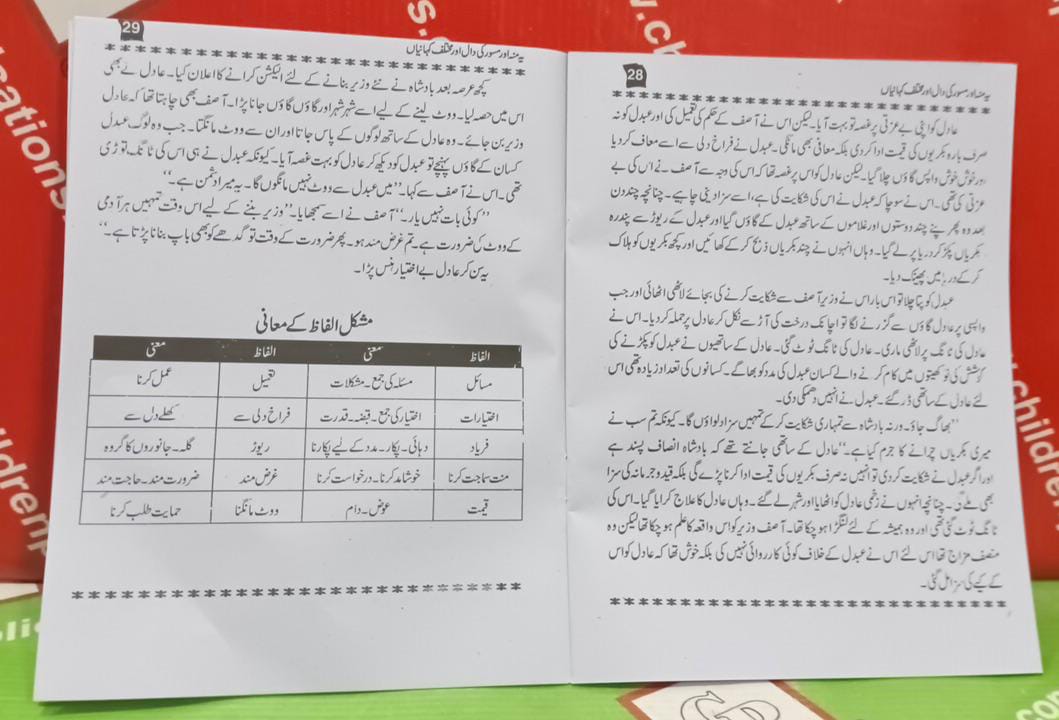 یہ منہ اور مسور کی دال اور مختلف کہانیاں
28
عادل کو اپنی بے عزتی پر غصہ تو بہت آیا۔ لیکن اس نے آصف کے حکم کی تعمیل کی اور عبدل کو نہ
صرف بارہ بکریوں کی قیمت ادا کر دی بلکہ معافی بھی مانگی۔ عبدل نے فراخ دلی سے اسے معاف کر دیا
اور خوش خوش واپس گاؤں چلا گیا۔ لیکن عادل کو اس پر غصہ تھا کہ اس کی وجہ سے آصف نے اس کی بے
عزتی کی تھی۔ اس نے سوچا کہ عبدل نے اس کی شکایت کی ہے، اسے سزا دینی چاہیے۔ چنانچہ چند دن
بعد وہ پھر اپنے چند دوستوں اور غلاموں کے ساتھ عبدل کے گاؤں گیا اور عبدل کے ریوڑ سے پندرہ
بکریاں پکڑ کر دریا پر لے گیا۔ وہاں انہوں نے چند بکریاں ذبح کر کے کھائیں اور کچھ بکریوں کو ہلاک
کر کے دریا میں پھینک دیا۔
عبدل کو پتا چلا تو اس بار اس نے وزیر آصف سے شکایت کرنے کی بجائے لاٹھی اٹھائی اور جب
واپسی پر عادل گاؤں سے گزرنے لگا تو اچانک درخت کی آڑ سے نکل کر عادل پر حملہ کر دیا۔ اس نے
عادل کی ٹانگ پر لاٹھی ماری۔ عادل کی ٹانگ ٹوٹ گئی۔ عادل کے ساتھیوں نے عبدل کو پکڑنے کی
کوشش کی تو کھیتوں میں کام کرنے والے کسان عبدل کی مدد کو بھاگے۔ کسانوں کی تعداد زیادہ تھی اس
لئے عادل کے ساتھی ڈر گئے۔ عبدل نے انہیں دھمکی دی۔
’’بھاگ جاؤ۔ ورنہ بادشاہ سے تمہاری شکایت کر کے تمہیں سزا دلواؤں گا۔ کیونکہ تم سب نے
میری بکریاں چرانے کا جرم کیا ہے۔‘‘ عادل کے ساتھی جانتے تھے کہ بادشاہ انصاف پسند ہے
اور اگر عبدل نے شکایت کر دی تو انہیں نہ صرف بکریوں کی قیمت ادا کرنا پڑے گی بلکہ قید و جرمانہ کی سزا
بھی ملے گی۔ چنانچہ انہوں نے زخمی عادل کو اٹھایا اور شہر لے گئے۔ وہاں عادل کا علاج کرایا گیا۔ اس کی
ٹانگ ٹوٹ گئی تھی اور وہ ہمیشہ کے لئے لنگڑا ہو چکا تھا۔ آصف وزیر کو اس واقعہ کا علم ہو چکا تھا لیکن وہ
منصف مزاج تھا اس لئے اس نے عبدل کے خلاف کوئی کارروائی نہیں کی بلکہ خوش تھا کہ عادل کو اس
کے کیے کی سزا مل گئی۔
یہ منہ اور مسور کی دال اور مختلف کہانیاں
29
کچھ عرصہ بعد بادشاہ نے نئے وزیر بنانے کے لئے الیکشن کرانے کا اعلان کیا۔ عادل نے بھی
اس میں حصہ لیا۔ ووٹ لینے کے لیے اسے شہر شہر اور گاؤں گاؤں جانا پڑا۔ آصف بھی چاہتا تھا کہ عادل
وزیر بن جائے۔ وہ عادل کے ساتھ لوگوں کے پاس جاتا اور ان سے ووٹ مانگتا۔ جب وہ لوگ عبدل
کسان کے گاؤں پہنچے تو عبدل کو دیکھ کر عادل کو بہت غصہ آیا۔ کیونکہ عبدل نے ہی اس کی ٹانگ توڑی
تھی۔ اس نے آصف سے کہا۔ ’’میں عبدل سے ووٹ نہیں مانگوں گا۔ یہ میرا دشمن ہے۔‘‘
’’کوئی بات نہیں یار۔‘‘ آصف نے اسے سمجھایا۔ ’’وزیر بننے کے لیے اس وقت تمہیں ہر آدمی
کے ووٹ کی ضرورت ہے۔ تم غرض مند ہو۔ پھر ضرورت کے وقت تو گدھے کو بھی باپ بنانا پڑتا ہے۔‘‘
یہ سن کر عادل بے اختیار ہنس پڑا۔
مشکل الفاظ کے معانی
الفاظ معنی الفاظ معنی
مسائل مسئلہ کی جمع۔ مشکلات تعمیل عمل کرنا
اختیارات اختیار کی جمع۔ قبضہ۔ قدرت فراخ دلی سے کھلے دل سے
فریاد دہائی۔ پکار۔ مدد کے لیے پکارنا ریوڑ گلہ۔ جانوروں کا گروہ
منت سماجت کرنا خوشامد کرنا۔ درخواست کرنا غرض مند ضرورت مند۔ حاجت مند
قیمت عوض۔ دام ووٹ مانگنا حمایت طلب کرنا
cations
s.c
v.ch
children
ildrenp
.children